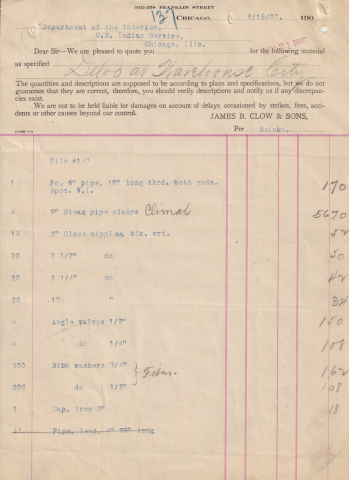 342-358 FRANKLIN STREET
137
CHICAGO, 8/15/07. 190
Department of the Interior,
U.S. Indian Service,
Chicago, Ills.
Dear Sir—We are pleased to quote you for the following material
as specified Delvd at Warehouse City
The quantities and descriptions are supposed to be according to plans and specifications, but we do not
guarantee that they are correct, therefore, you should verify descriptions and notify us if any discrepan-
cies exist.
We are not to be held liable for damages on account of delays occasioned by strikes, fires, acci-
dents or other causes beyond our control.
JAMES B. CLOW & SONS,
Per Reinke.
File #137
1 Pc. 6" pipe, 18" long thrd. both ends. 170
spec. W.I.
4 9" Steam pipe clamps Climax 5670
15 2" Close nipples, blk. wrt. 52
20 1 1/2" do 50
20 1 1/4" do 42
20 1" " 32
4 Angle valves 1/2" 150
4 do 1/4" 108
300 Bibb washers 3/4" Fiber 162
300 do 1/2" 108
1 Cap, iron 3" 18
4' Pipe, lead, 38" long